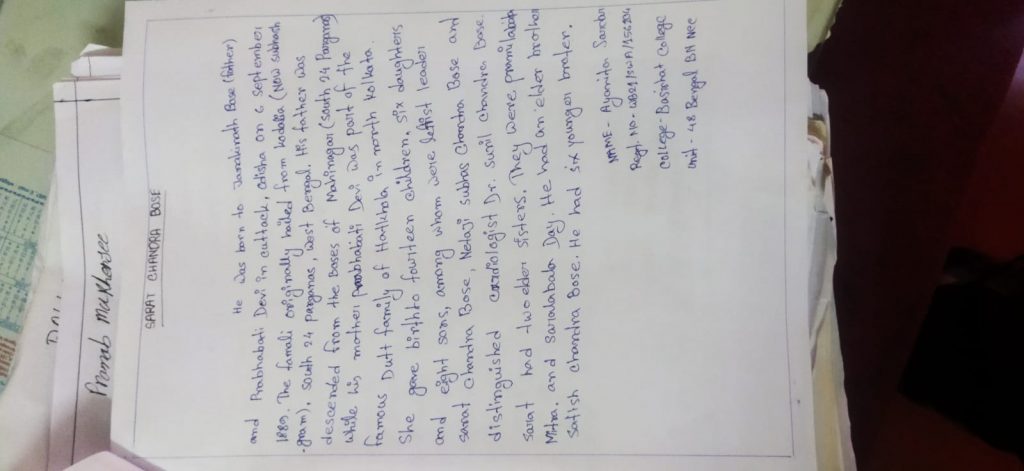 SARAT CHANDRA BOSE
He was born to Janakinath Bose (father)
and Prabhabati Devi in cuttack, Odisha on 6 september
1889. The famali originally hailed from kodalia (Now subhash
-gram), south 24 parganas, West Bengal. His father was
descended from the Boses of Mahinagar (south 24 Parganas)
while his mother prabhabati Devi was part of the
famous Dutt family of Hatkhola in north Kolkata.
She gave birth to fourteen children, six daughters
and eight sons, among whom were leftist leader
sarat chandra Bose, Netaji subhas Chandra Bose and
distinguished cardiologist Dr. sunil chandra Bose.
sarat had two elder sisters. They were pramilabala
Mitra. and saralabala Day. He had an elder brother
Satish chandra Bose. He had six younger brater.
NAME - Ayamita Sardar
Regt. No. - WB21/SWA/156204
College - Basirhat College
Unit - 48 Bengal BN NCC
Pranab Mukherjee